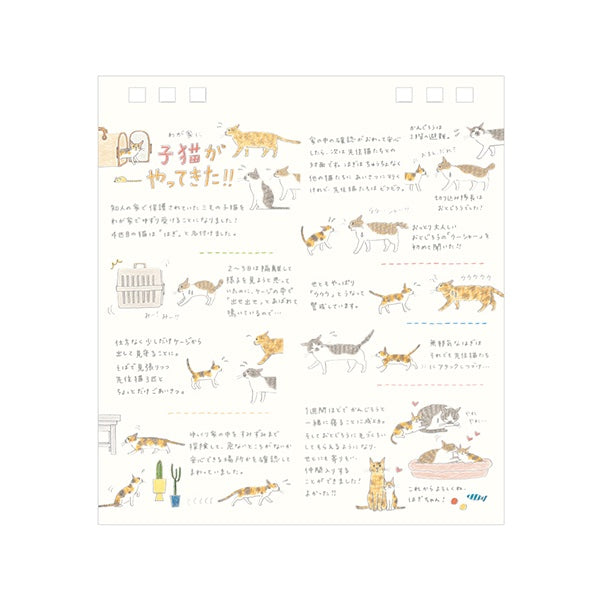 わが家に
子猫が
やってきた!!
知人の家で保護されていたこの子猫を
わが家でゆずり受けることになりました!
4匹目の猫は"はぎ"と名付けました。
2〜3日は隔離して
様子を見ようと思って
いたのに、ケージの中で
"出せ出せ"とあばれて
鳴いているので…
みー みー!!
仕方なく少しだけケージから
出して見守ることに。
そばで見張りつつ
先住猫3匹と
ちょっとだけごあいさつ。
ゆっくり家の中をすみずみまで
探検して、危ないところがないか
安心できる場所かを確認して
まわっていました。
家の中の確認がおわって安心
したら、次は先住猫たちとの
対面です。はぎはちゅうちょなく
他の猫たちにあいさつに行く
けれど、先住猫たちはビクビク。
かんぐろうは
2階へ避難。
切り込み隊長は
おとじろうでした!
おっとり大人しい
おとじろうの"ウーシャーッ"を
初めて聞いた!!
せともやっぱり
"ウウウ"とうなって
警戒しています。
ウウウウウ
無邪気なはぎは
それでも先住猫たち
にアタックしつづけ…
1週間ほどでかんぐろうと
一緒に寝ることに成功。
そしておとじろうにもごろごろ
してもらえるようになり、
せとにも寄りそい
仲間入りする
ことができました!
よかった!!
これからよろしくね、
はぎちゃん!